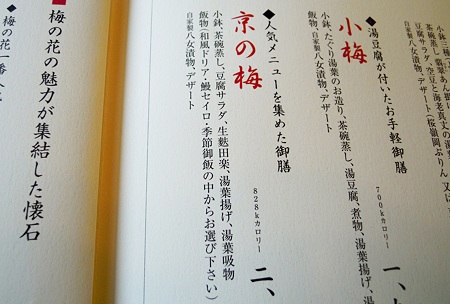 小鉢三種
茶碗蒸し、翡翠あん掛け
豆腐サラダ、空豆と海老真丈の湯
自家製八女漬物、デザート(桜嶺岡ぷりん 又は
◆湯豆腐が付いたお手軽御膳
700kカロリー
小梅
一、
小鉢、たぐり湯葉のお造り、茶碗蒸し、湯豆腐、煮物、湯葉揚げ、湯
飯物、自家製八女漬物、デザート
◆人気メニューを集めた御膳
828kカロリー
京の梅
二、
小鉢、茶碗蒸し、豆腐サラダ、生麩田楽、湯葉揚げ、湯葉吸物
飯物(和風ドリア・鰻セイロ・季節御飯の中からお選び下さい)
自家製八女漬物、デザート
■梅の花の魅力が集結した懐石
◆梅の花一番人気